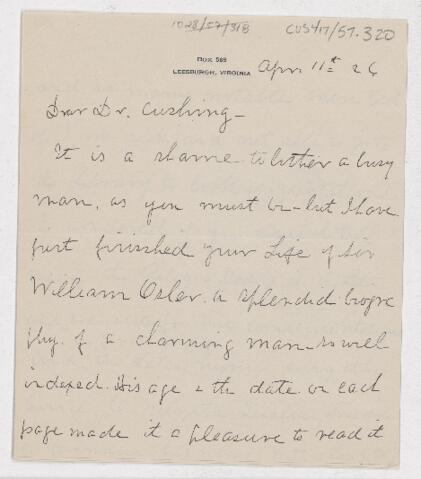 1028/57/318
CUS417/57.320
BOX 589
LEESBURGH, VIRGINIA
Apr. 11th 26
Dear Dr. Cushing -
It is a shame to bother a busy
man, as you must be - but I have
just finished your Life of Sir
William Osler. a splendid biogra
phy. of a charming man - so well
indexed. His age & the date on each
page made it a pleasure to read it